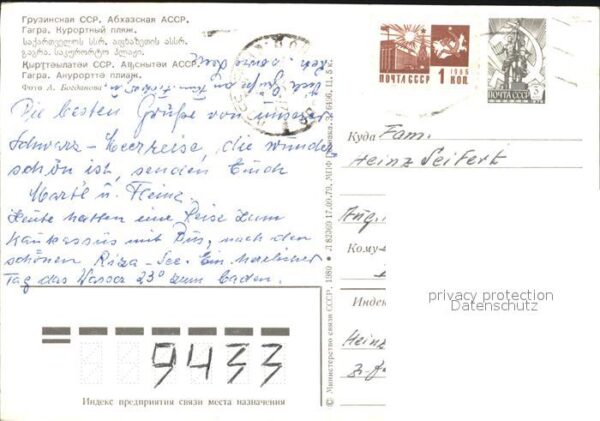 Грузинская ССР. Абхазская АССР.
Гагра. Курортный пляж.
საქართველოს სსრ. აფხაზეთის ასსრ.
გაგრა. საკურორტო პლაჟი.
Қырҭтәылатәи ССР. Аҧснытәи АССР.
Гагра. Акурорттә пляж.
Фото А. Богданова
Die besten Grüße von unserer
Schwarz-Meerreise, die wunder
schön ist, senden Euch
Martl u. Heinz.
Heute hatten eine Reise zum
Kaukassus mit Bus, nach den
schönen Riza-See. Ein herrlicher
Tag das Wasser 23° zum baden.
9433
Индекс предприятия связи места назначения
© Министерство связи СССР. 1980
Л 82369 17.09.79.
ПОЧТА СССР 1 КОП.
1966
ПОЧТА СССР
Куда Fam.
Heinz Seifert
Aug.
Кому
Индек
Heinz
privacy protection
Datenschutz